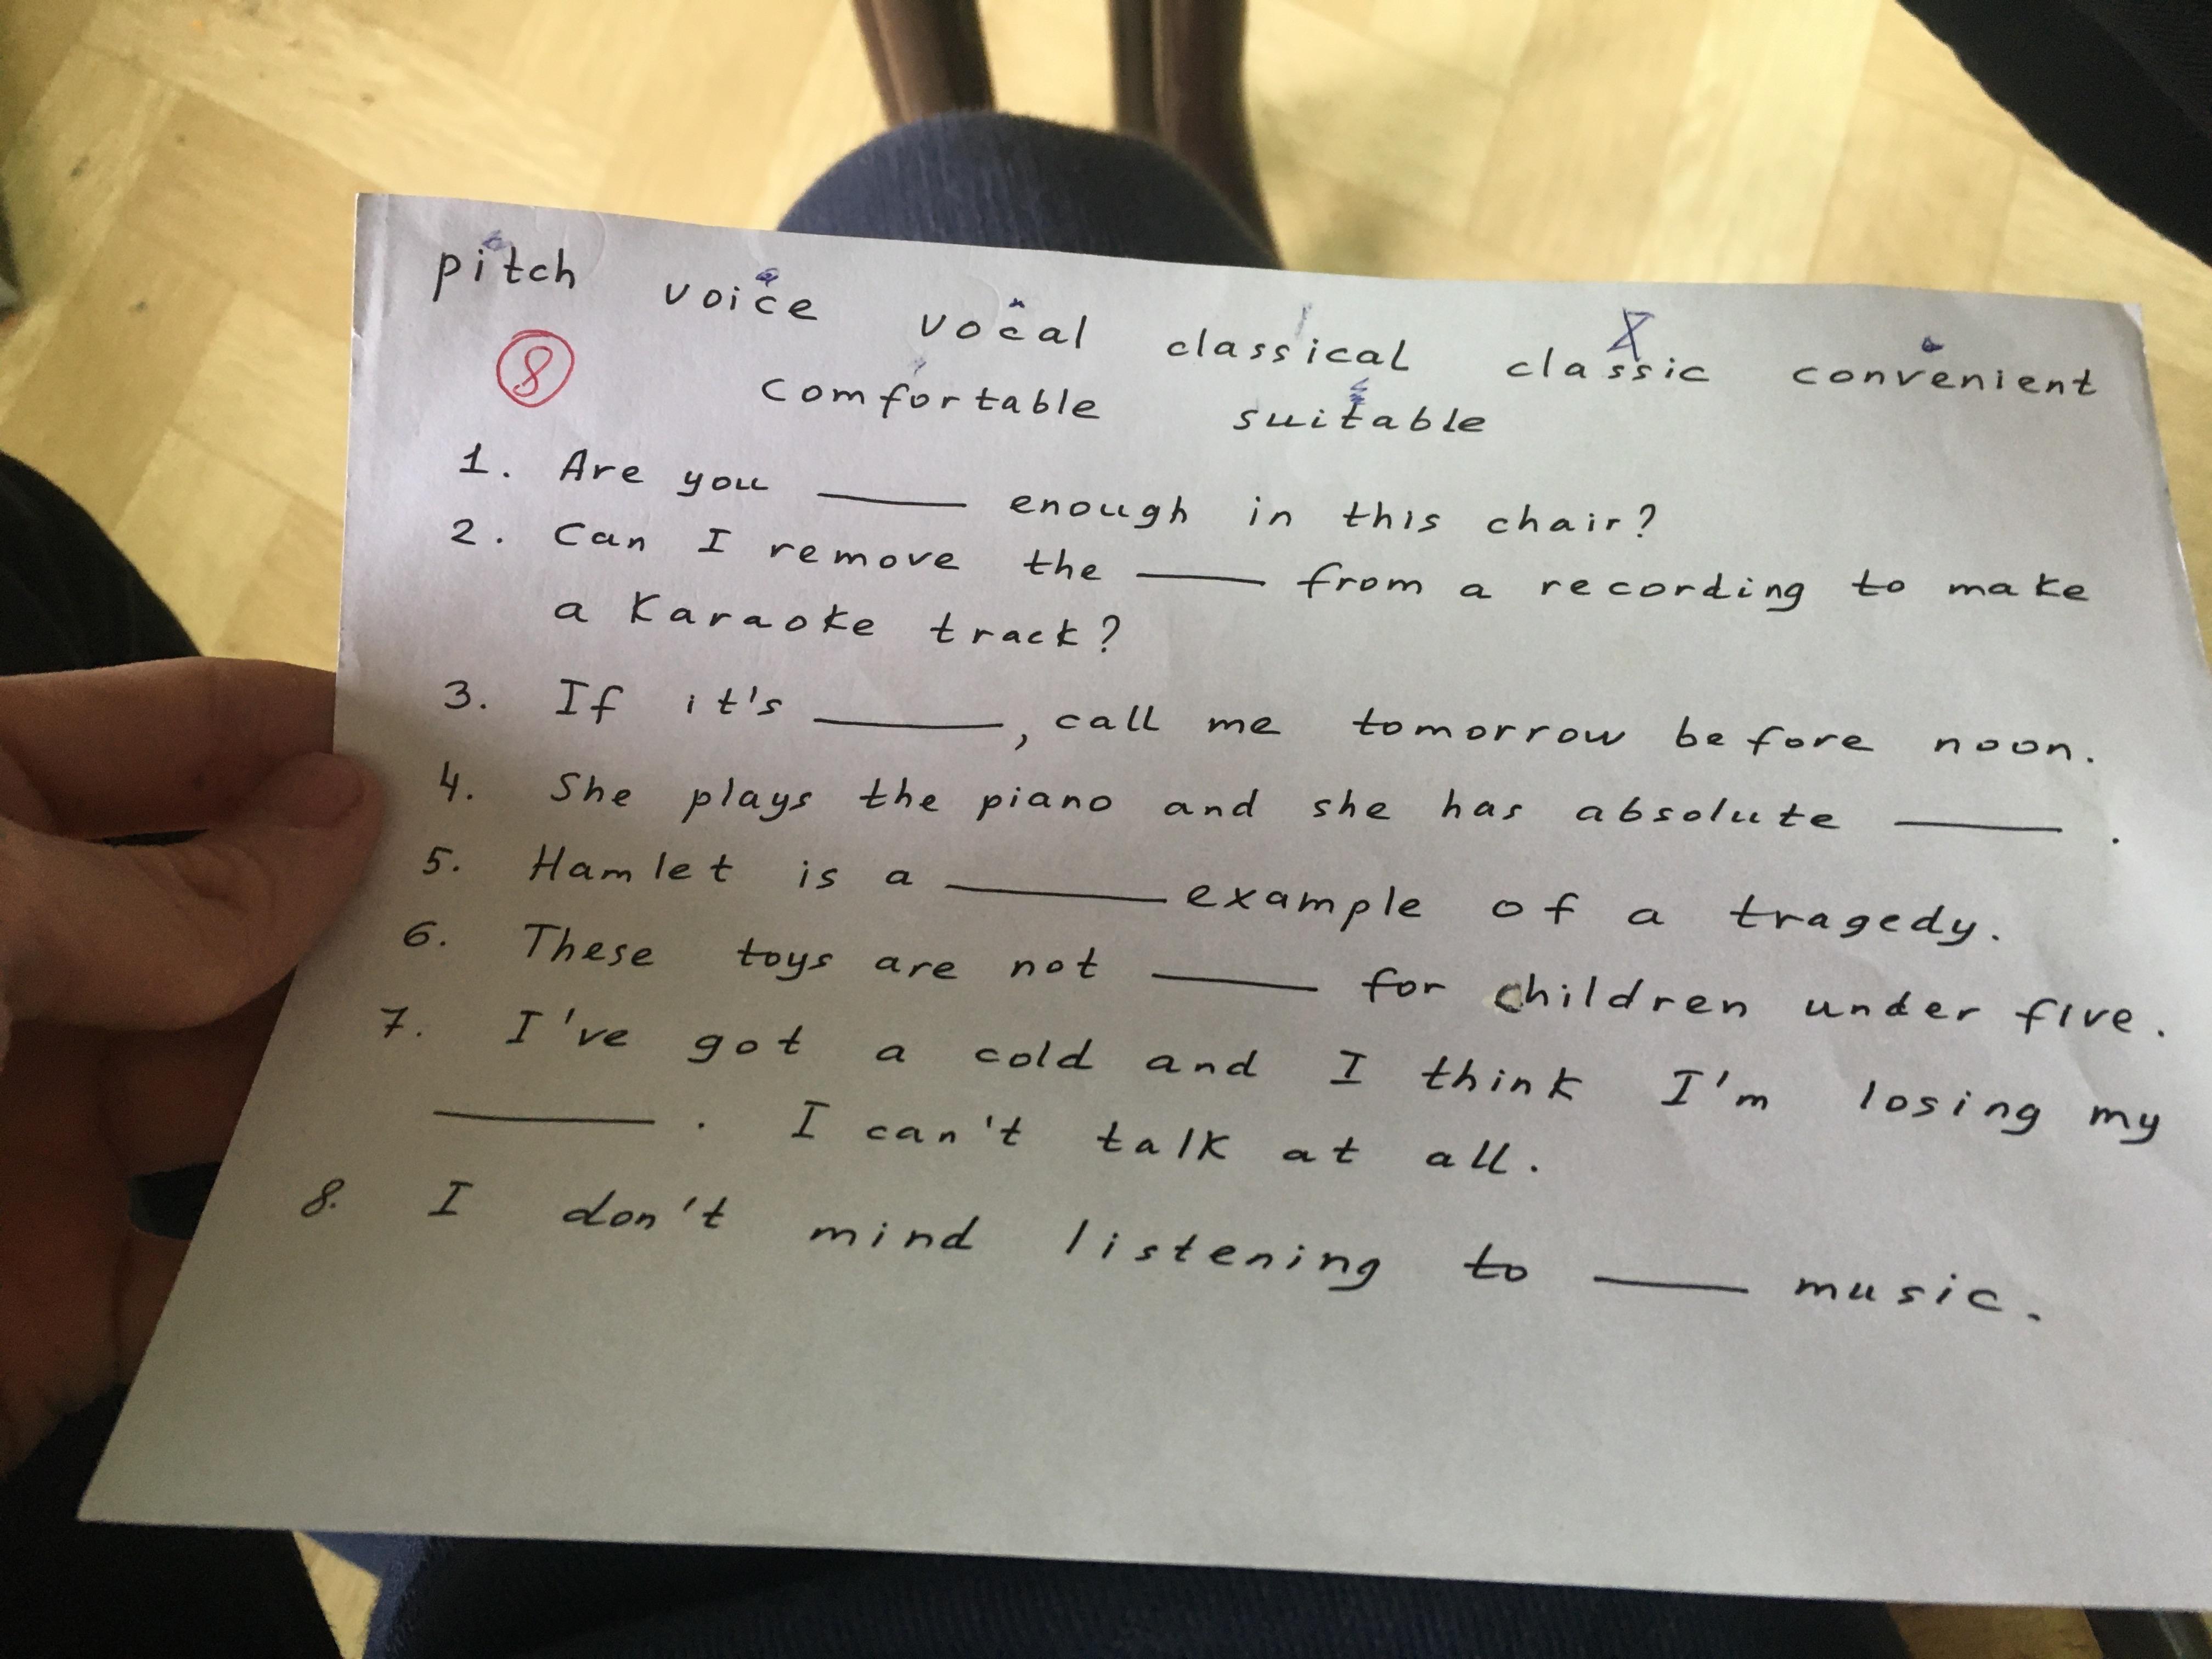 pitch voice vocal classical classic convenient
8 comfortable suitable
1. Are you ____ enough in this chair?
2. Can I remove the ____ from a recording to make
a karaoke track?
3. If it's ____, call me tomorrow before noon.
4. She plays the piano and she has absolute ____.
5. Hamlet is a ____ example of a tragedy.
6. These toys are not ____ for children under five.
7. I've got a cold and I think I'm losing my
____. I can't talk at all.
8. I don't mind listening to ____ music.